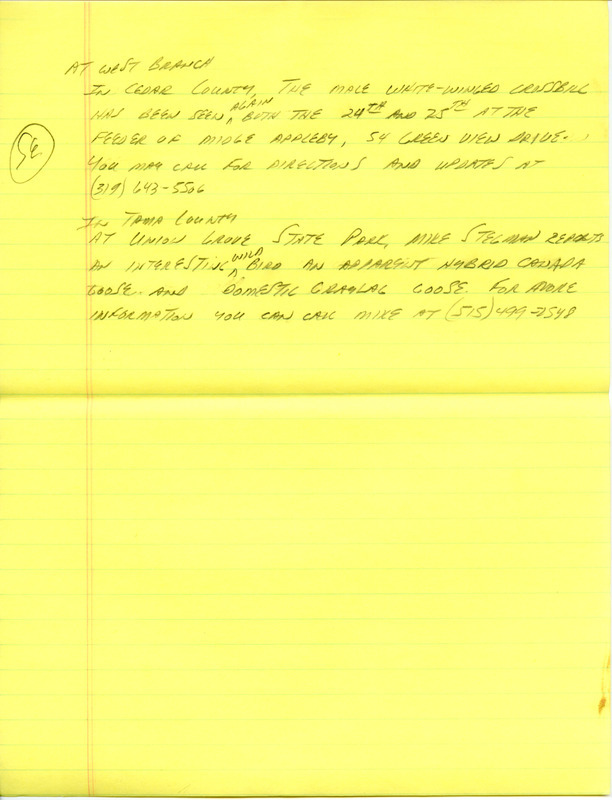 AT WEST BRANCH
IN CEDAR COUNTY, THE MALE WHITE-WINGED CROSSBILL
HAS BEEN SEEN AGAIN BOTH THE 24TH AND 25TH AT THE
FEEDER OF MIDGE APPLEBY, 54 GREEN VIEW DRIVE.
YOU MAY CALL FOR DIRECTIONS AND UPDATES AT
(319) 643-5506
IN TAMA COUNTY
AT UNION GROVE STATE PARK, MIKE STEGMAN REPORTS
AN INTERESTING WILD BIRD AN APPARENT HYBRID CANADA
GOOSE AND DOMESTIC GRAYLAG GOOSE. FOR MORE
INFORMATION YOU CAN CALL MIKE AT (515) 499-2548